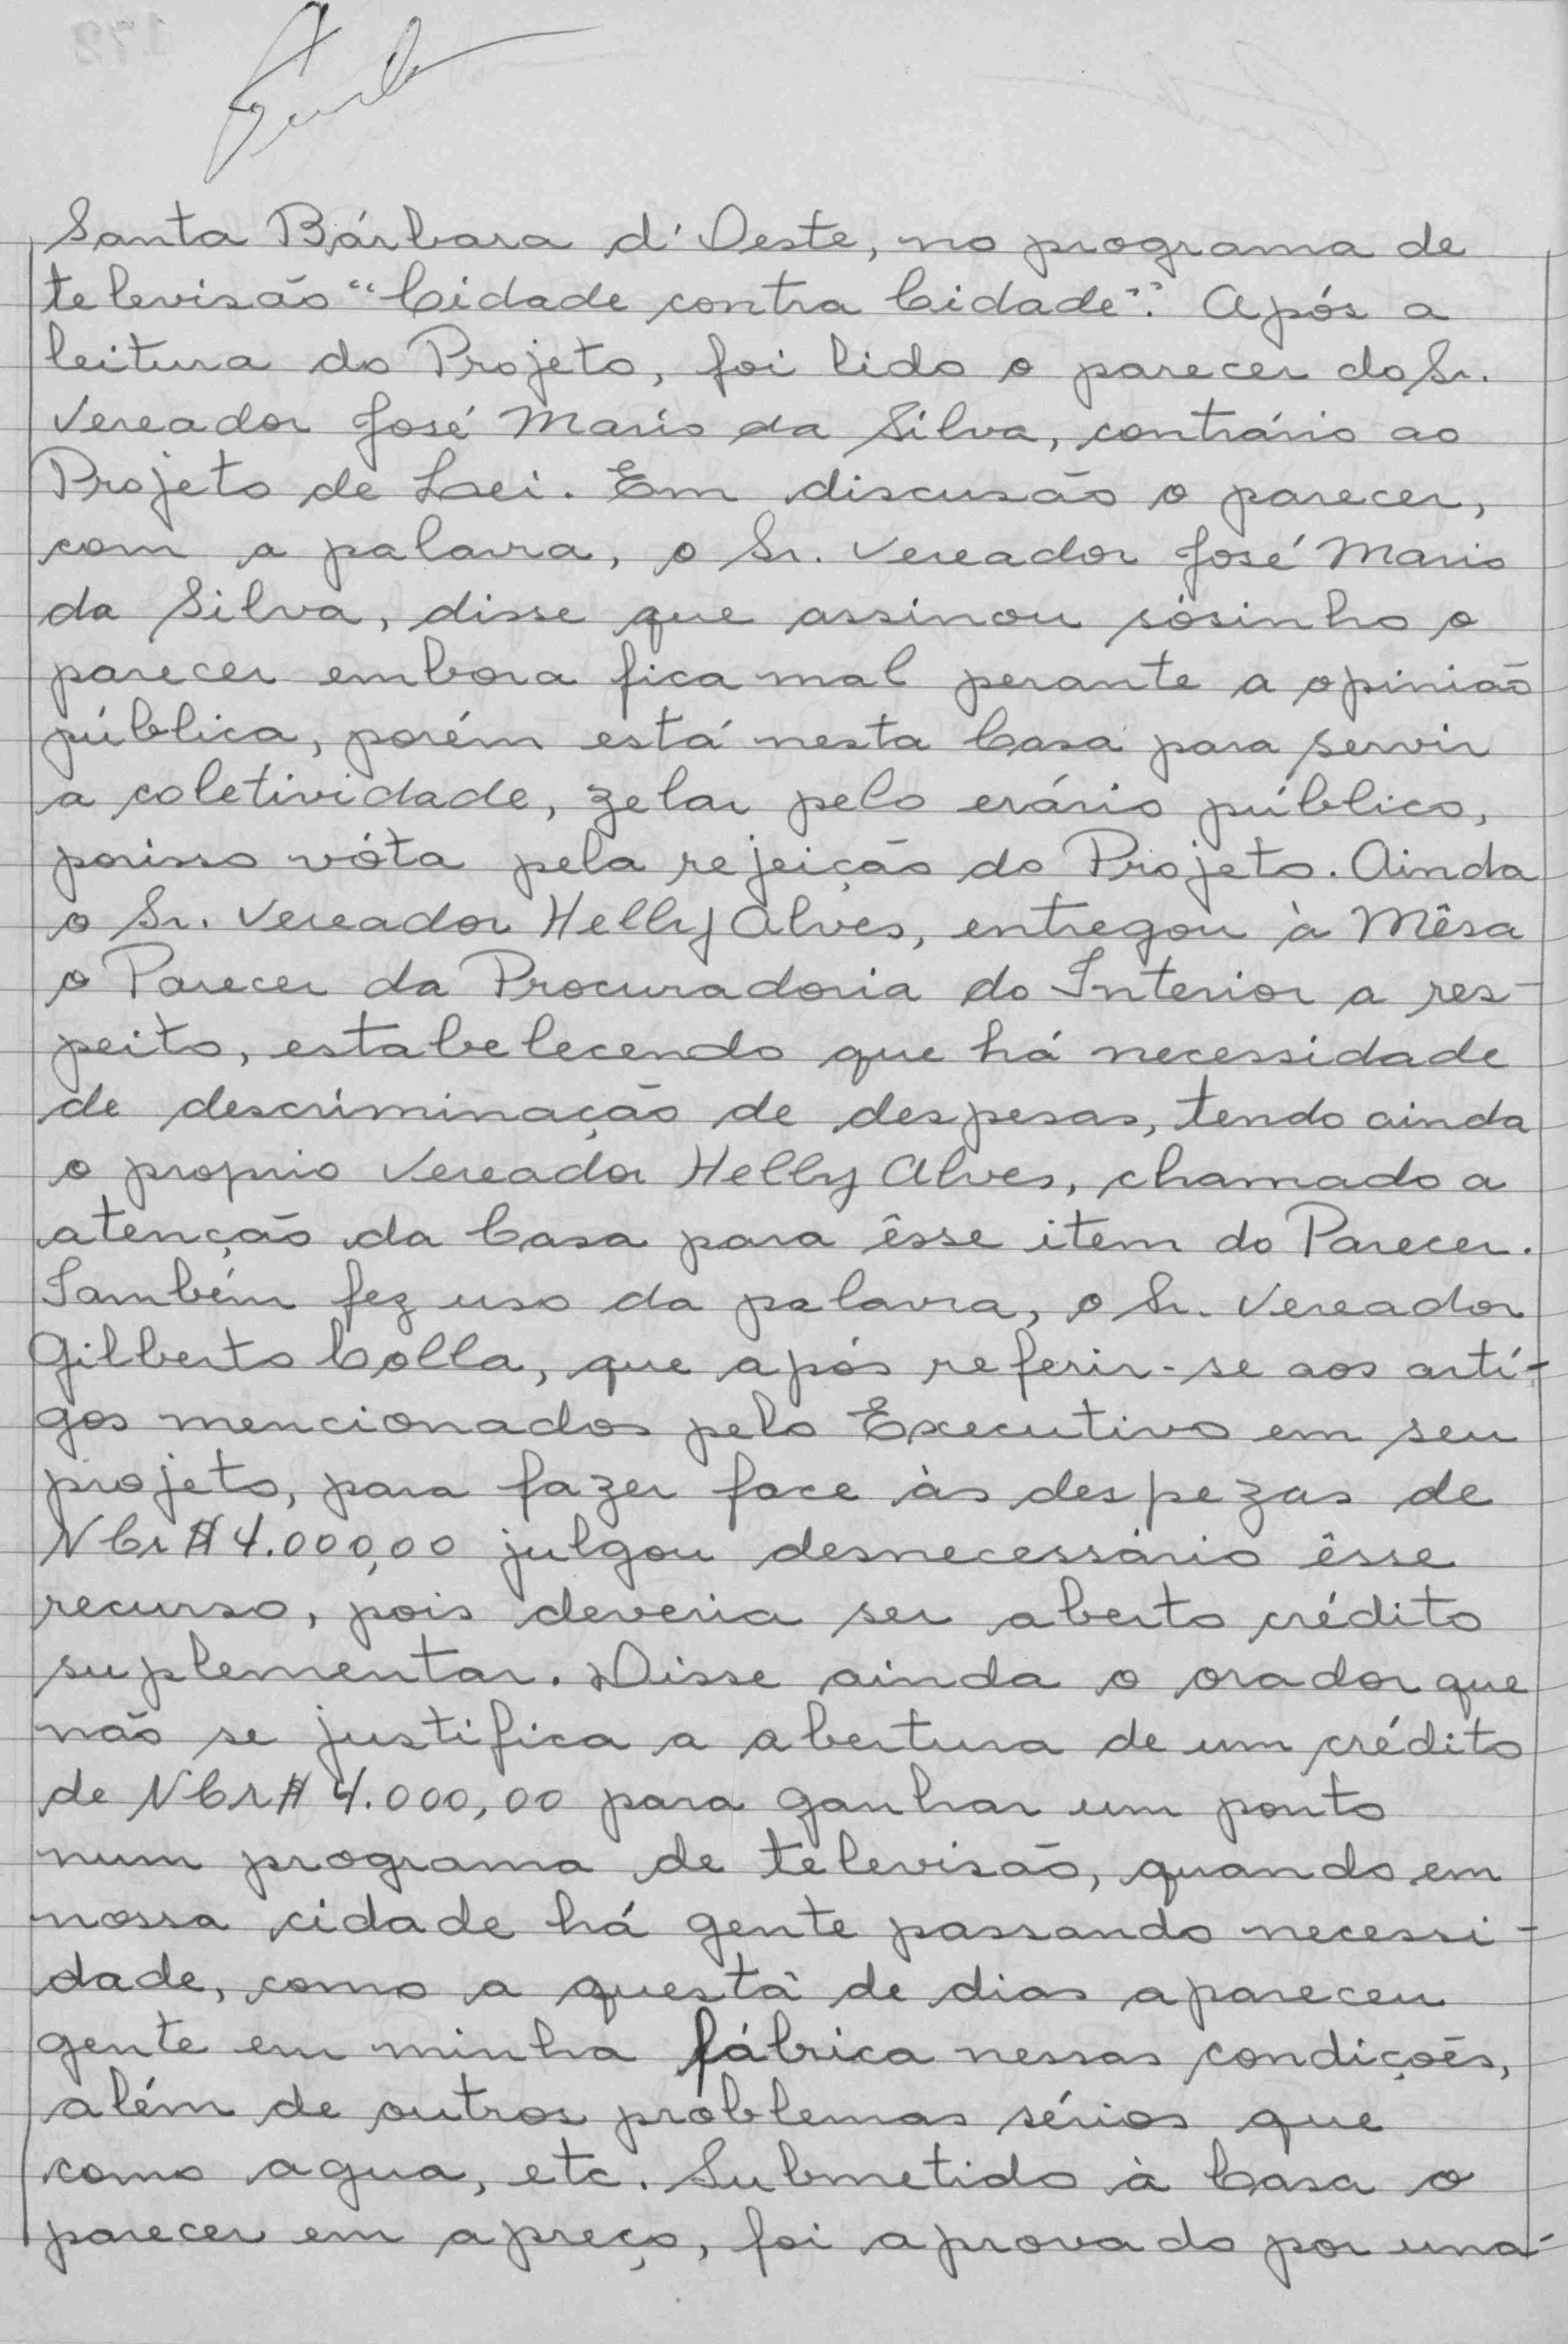 Santa Bárbara d'Oeste, no programa de
televisão "Cidade contra Cidade". Após a
leitura do Projeto, foi lido o parecer do Sr.
Vereador José Mario da Silva, contrário ao
Projeto de Lei. Em discusão o parecer,
com a palavra, o Sr. Vereador José Mario
da Silva, disse que assinou sósinho o
parecer embora fica mal perante a opinião
pública, porém está nesta Casa para servir
a coletividade, zelar pelo erário público,
porisso vóta pela rejeição do Projeto. Ainda
o Sr. Vereador Helly Alves, entregou à Mêsa
o Parecer da Procuradoria do Interior a res-
peito, estabelecendo que há necessidade
de descriminação de despesas, tendo ainda
o proprio Vereador Helly Alves, chamado a
atenção da Casa para êsse item do Parecer.
Também fez uso da palavra, o Sr. Vereador
Gilberto Colla, que após referir-se aos artí-
gos mencionados pelo Executivo em seu
projeto, para fazer face às despezas de
NCr$ 4.000,00 julgou desnecessário êsse
recurso, pois deveria ser aberto crédito
suplementar. Disse ainda o orador que
não se justifica a abertura de um crédito
de NCr$ 4.000,00 para ganhar um ponto
num programa de televisão, quando em
nossa cidade há gente passando necessi-
dade, como a questà de dias apareceu
gente em minha fábrica nessas condições,
além de outros problemas sérios que
como agua, etc. Submetido à Casa o
parecer em apreço, foi aprovado por una-